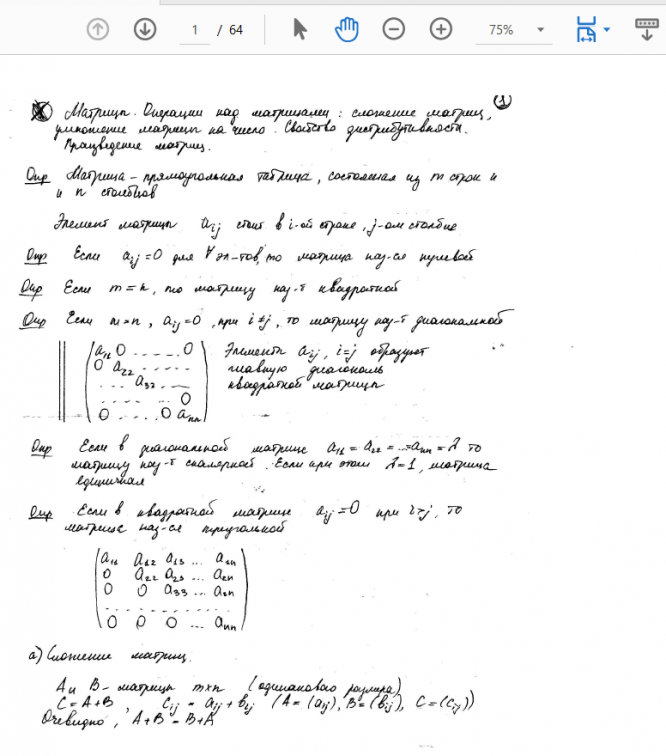 1 / 64
75%
1
Матрицы. Операции над матрицами: сложение матриц,
умножение матрицы на число. Свойство дистрибутивности.
Произведение матриц.
Опр Матрица – прямоугольная таблица, состоящая из m строк и
и n столбцов
Элемент матрицы aij стоит в i-ой строке, j-ом столбце
Опр Если aij = 0 для ∀ эл-тов, то матрица наз-ся нулевой
Опр Если m = n, то матрицу наз-т квадратной
Опр Если m=n, aij=0, при i≠j, то матрицу наз-т диагональной
a11 0 ..... 0
0 a22 .....
... a33 ...
..... 0
0 .... 0 ann
Элементы aij, i=j образуют
главную диагональ
квадратной матрицы
Опр Если в диагональной матрице a11 = a22 = ... = ann = λ то
матрицу наз-т скалярной. Если при этом λ=1, матрица
единичная
Опр Если в квадратной матрице aij = 0 при i>j, то
матрица наз-ся треугольной
a11 a12 a13 ... a1n
0 a22 a23 ... a2n
0 0 a33 ... a3n
..........
0 0 0 ... ann
а) Сложение матриц.
A и B – матрицы m×n (одинакового размера)
C = A+B, cij = aij + bij (A = (aij), B = (bij), C = (cij))
Очевидно, A+B = B+A